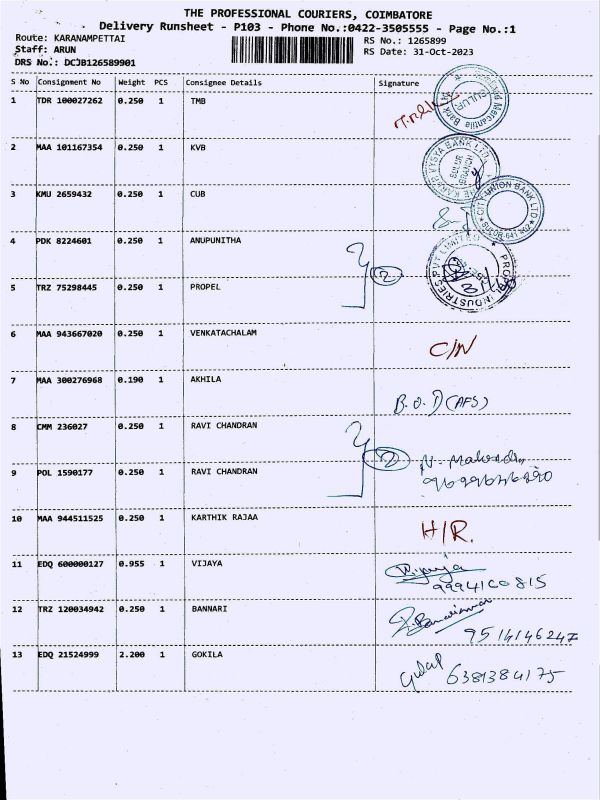 THE PROFESSIONAL COURIERS, COIMBATORE
Delivery Runsheet - P103 - Phone No.:0422-3505555 - Page No.:1
Route: KARANAMPETTAI RS No.: 1265899
Staff: ARUN RS Date: 31-Oct-2023
DRS No.: DCJB126589901
S No Consignment No Weight PCS Consignee Details Signature
1 TDR 100027262 0.250 1 TMB
2 MAA 101167354 0.250 1 KVB
3 KMU 2659432 0.250 1 CUB
4 PDK 8224601 0.250 1 ANUPUNITHA
5 TRZ 75298445 0.250 1 PROPEL
6 MAA 943667020 0.250 1 VENKATACHALAM C/N
7 MAA 300276968 0.190 1 AKHILA B.O.D (AFS)
8 CMM 236027 0.250 1 RAVI CHANDRAN
9 POL 1590177 0.250 1 RAVI CHANDRAN
10 MAA 944511525 0.250 1 KARTHIK RAJAA H/R.
11 EDQ 600000127 0.955 1 VIJAYA
9994100815
12 TRZ 120034942 0.250 1 BANNARI
9514146247
13 EDQ 21524999 2.200 1 GOKILA 6381384175